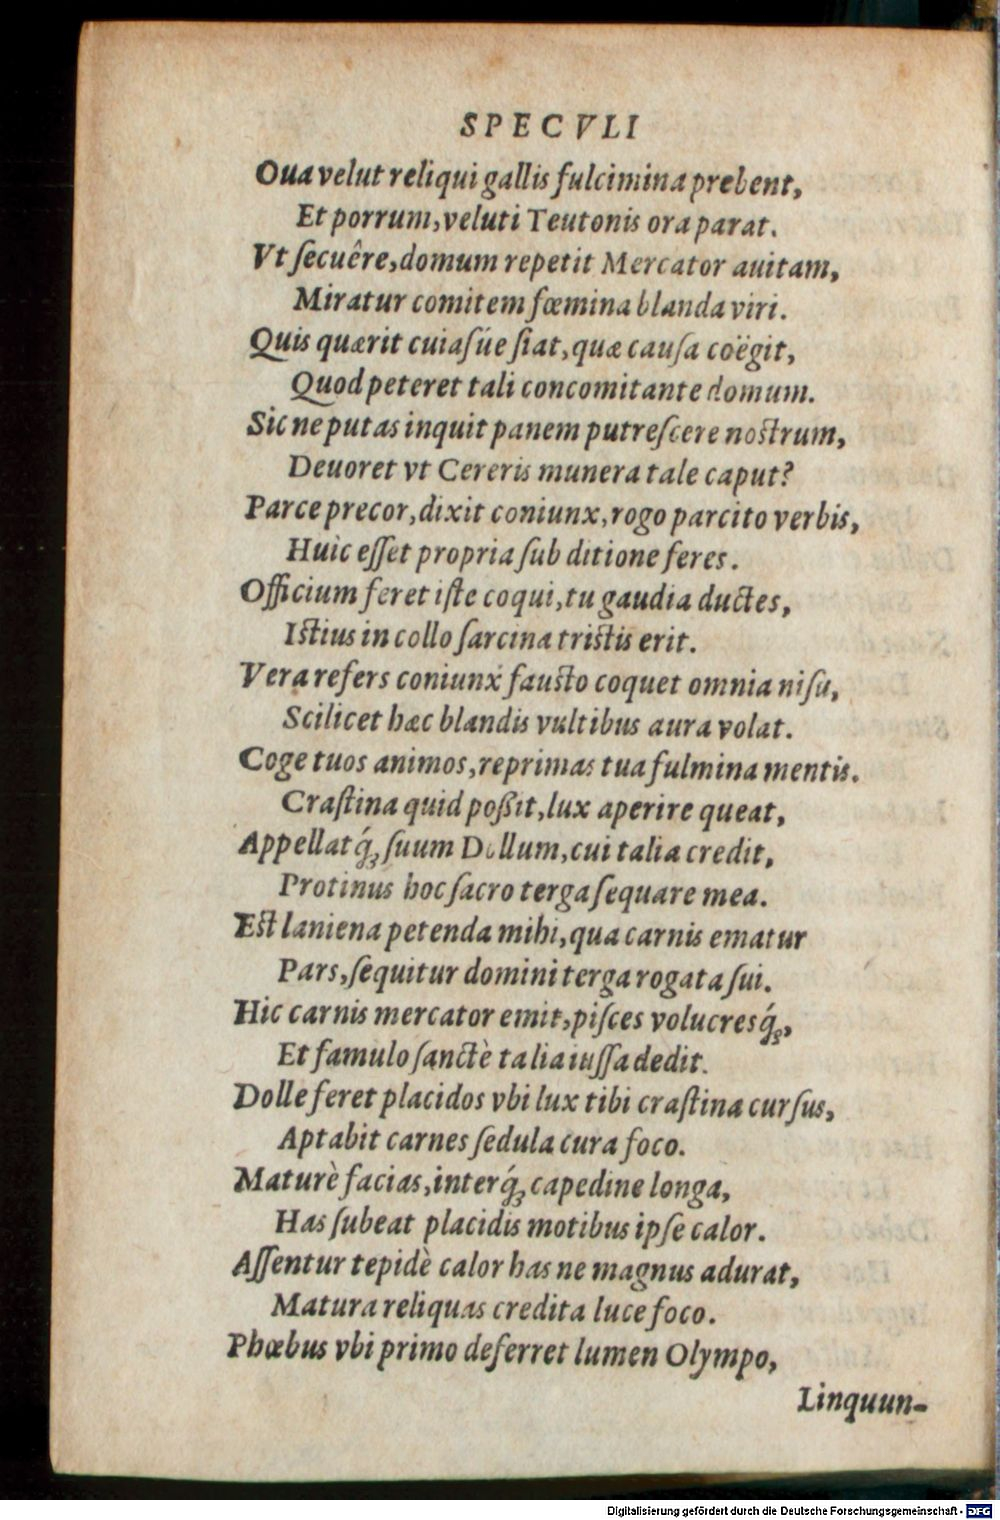 SPECVLI
Oua velut reliqui gallis fulcimina prebent,
Et porrum, veluti Teutonis ora parat.
Vt ſecuêre, domum repetit Mercator auitam,
Miratur comitem fœmina blanda viri.
Quis quærit cuiaſúe ſiat, quæ cauſa coëgit,
Quod peteret tali concomitante domum.
Sic ne putas inquit panem putreſcere noſtrum,
Deuoret vt Cereris munera tale caput?
Parce precor, dixit coniunx, rogo parcito verbis,
Huic eſſet propria ſub ditione feres.
Officium feret iſte coqui, tu gaudia ductes,
Iſtius in collo ſarcina triſtis erit.
Vera refers coniunx fauſto coquet omnia niſu,
Scilicet hæc blandis vultibus aura volat.
Coge tuos animos, reprimas tua fulmina mentis.
Craſtina quid poßit, lux aperire queat,
Appellatq́; ſuum Dollum, cui talia credit,
Protinus hoc ſacro terga ſequare mea.
Eſt laniena petenda mihi, qua carnis ematur
Pars, ſequitur domini terga rogata ſui.
Hic carnis mercator emit, piſces volucresq́;,
Et famulo ſanctè talia iuſſa dedit.
Dolle feret placidos vbi lux tibi craſtina curſus,
Aptabit carnes ſedula cura foco.
Maturè facias, interq́; capedine longa,
Has ſubeat placidis motibus ipſe calor.
Aſſentur tepidè calor has ne magnus adurat,
Matura reliquas credita luce foco.
Phœbus vbi primo deferret lumen Olympo,
Linquun-
Digitalisierung gefördert durch die Deutsche Forschungsgemeinschaft - DFG